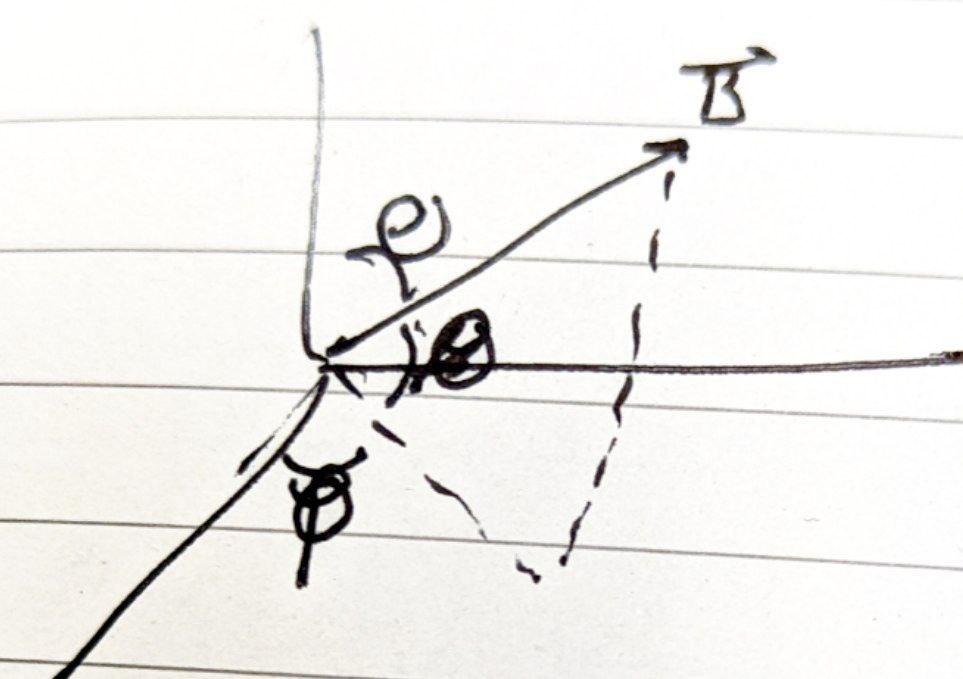 B
ρ
θ
φ